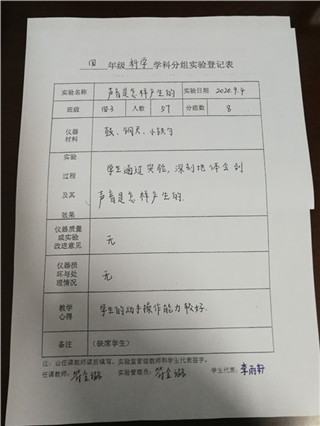 四 年级 科学 学科分组实验登记表
实验名称 声音是怎样产生的 实验日期 2020.9.4
班级 四3 人数 57 分组数 8
仪器材料 鼓、钢尺、小铁勺
实验过程及其效果 学生通过实验,深刻地体会到
声音是怎样产生的.
仪器质量或实验改进意见 无
仪器损坏与处理情况 无
教学心得 学生的动手操作能力较好.
备注 (缺席学生)
注:由任课教师课后填写、实验室管理教师和学生代表签字。
任课教师: 实验管理员: 学生代表:李雨轩